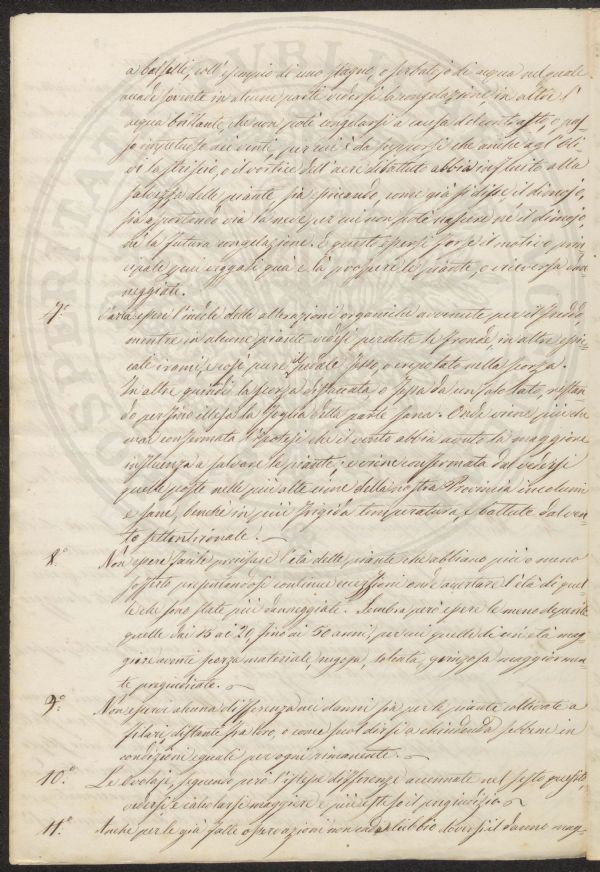 a bassetti, coll'esempio di uno stagno, o serbatojo di acqua nel quale
accade sovente in alcune parti vedersi la congelazione, in altre l'
acqua brillante, che non potè congelarsi a causa del contrasto, o pas-
so impetuoso dei venti, per cui è da supporsi che anche agl'Oli-
vi lo striscio, o il vortice dell'aere dibattuto abbia influito alla
salvezza delle piante, sia spiccando, come già si disse, il dimojo,
sia asportando via la neve per cui non potè nascere nè il dimojo,
nè la futura congelazione. E questo essersi forse il motivo prin-
cipale per cui veggonsi quà e là prospere le piante, o viceversa dan-
neggiate.
7.° Varia essere l'indole delle alterazioni organiche avvenute per il freddo
mentre in alcune piante videsi perdute le fronde, in altre essic-
cati i rami, e così pure il pedale fesso, o crepolato nella scorza.
In altre quindi la scorza distaccata, o fessa da un solo lato, restan-
do perfino illesa la foglia nella parte sana. Onde viene più che
mai confermata l'ipotesi che il vento abbia avuto la maggiore
influenza a salvare le piante; e viene confermata dal vedersi
quelle poste nelle più alte cime della nostra Provincia incolumi
e sane, benchè in più frigida temperatura, e battute dal ven-
to settentrionale.
8.° Non essere facile precisare l'età delle piante che abbiano più o meno
sofferto presentandosi continue eccezioni onde accertare l'età di quel-
le che sono state più danneggiate. Sembra però essere le meno deperite
quelle dai 15 ai 20 fino ai 50 anni, per cui quelle di un'età mag-
giore avente scorza materiale rugosa, solcata, grinzosa maggiormen-
te pregiudicate.
9.° Non esservi alcuna differenza nei danni sia per le piante coltivate a
filari, distante fra loro, o come suol dirsi a chiudenda sebbene in
condizioni eguale per ogni rimanente.
10.° Le Evoloje, seguendo però l'istesse differenze accennate nel sesto quesito,
doversi calcolarse maggiore e più esteso il pregiudizio.
11.° Anche per le già fatte osservazioni non cade dubbio doversi il danno mag-